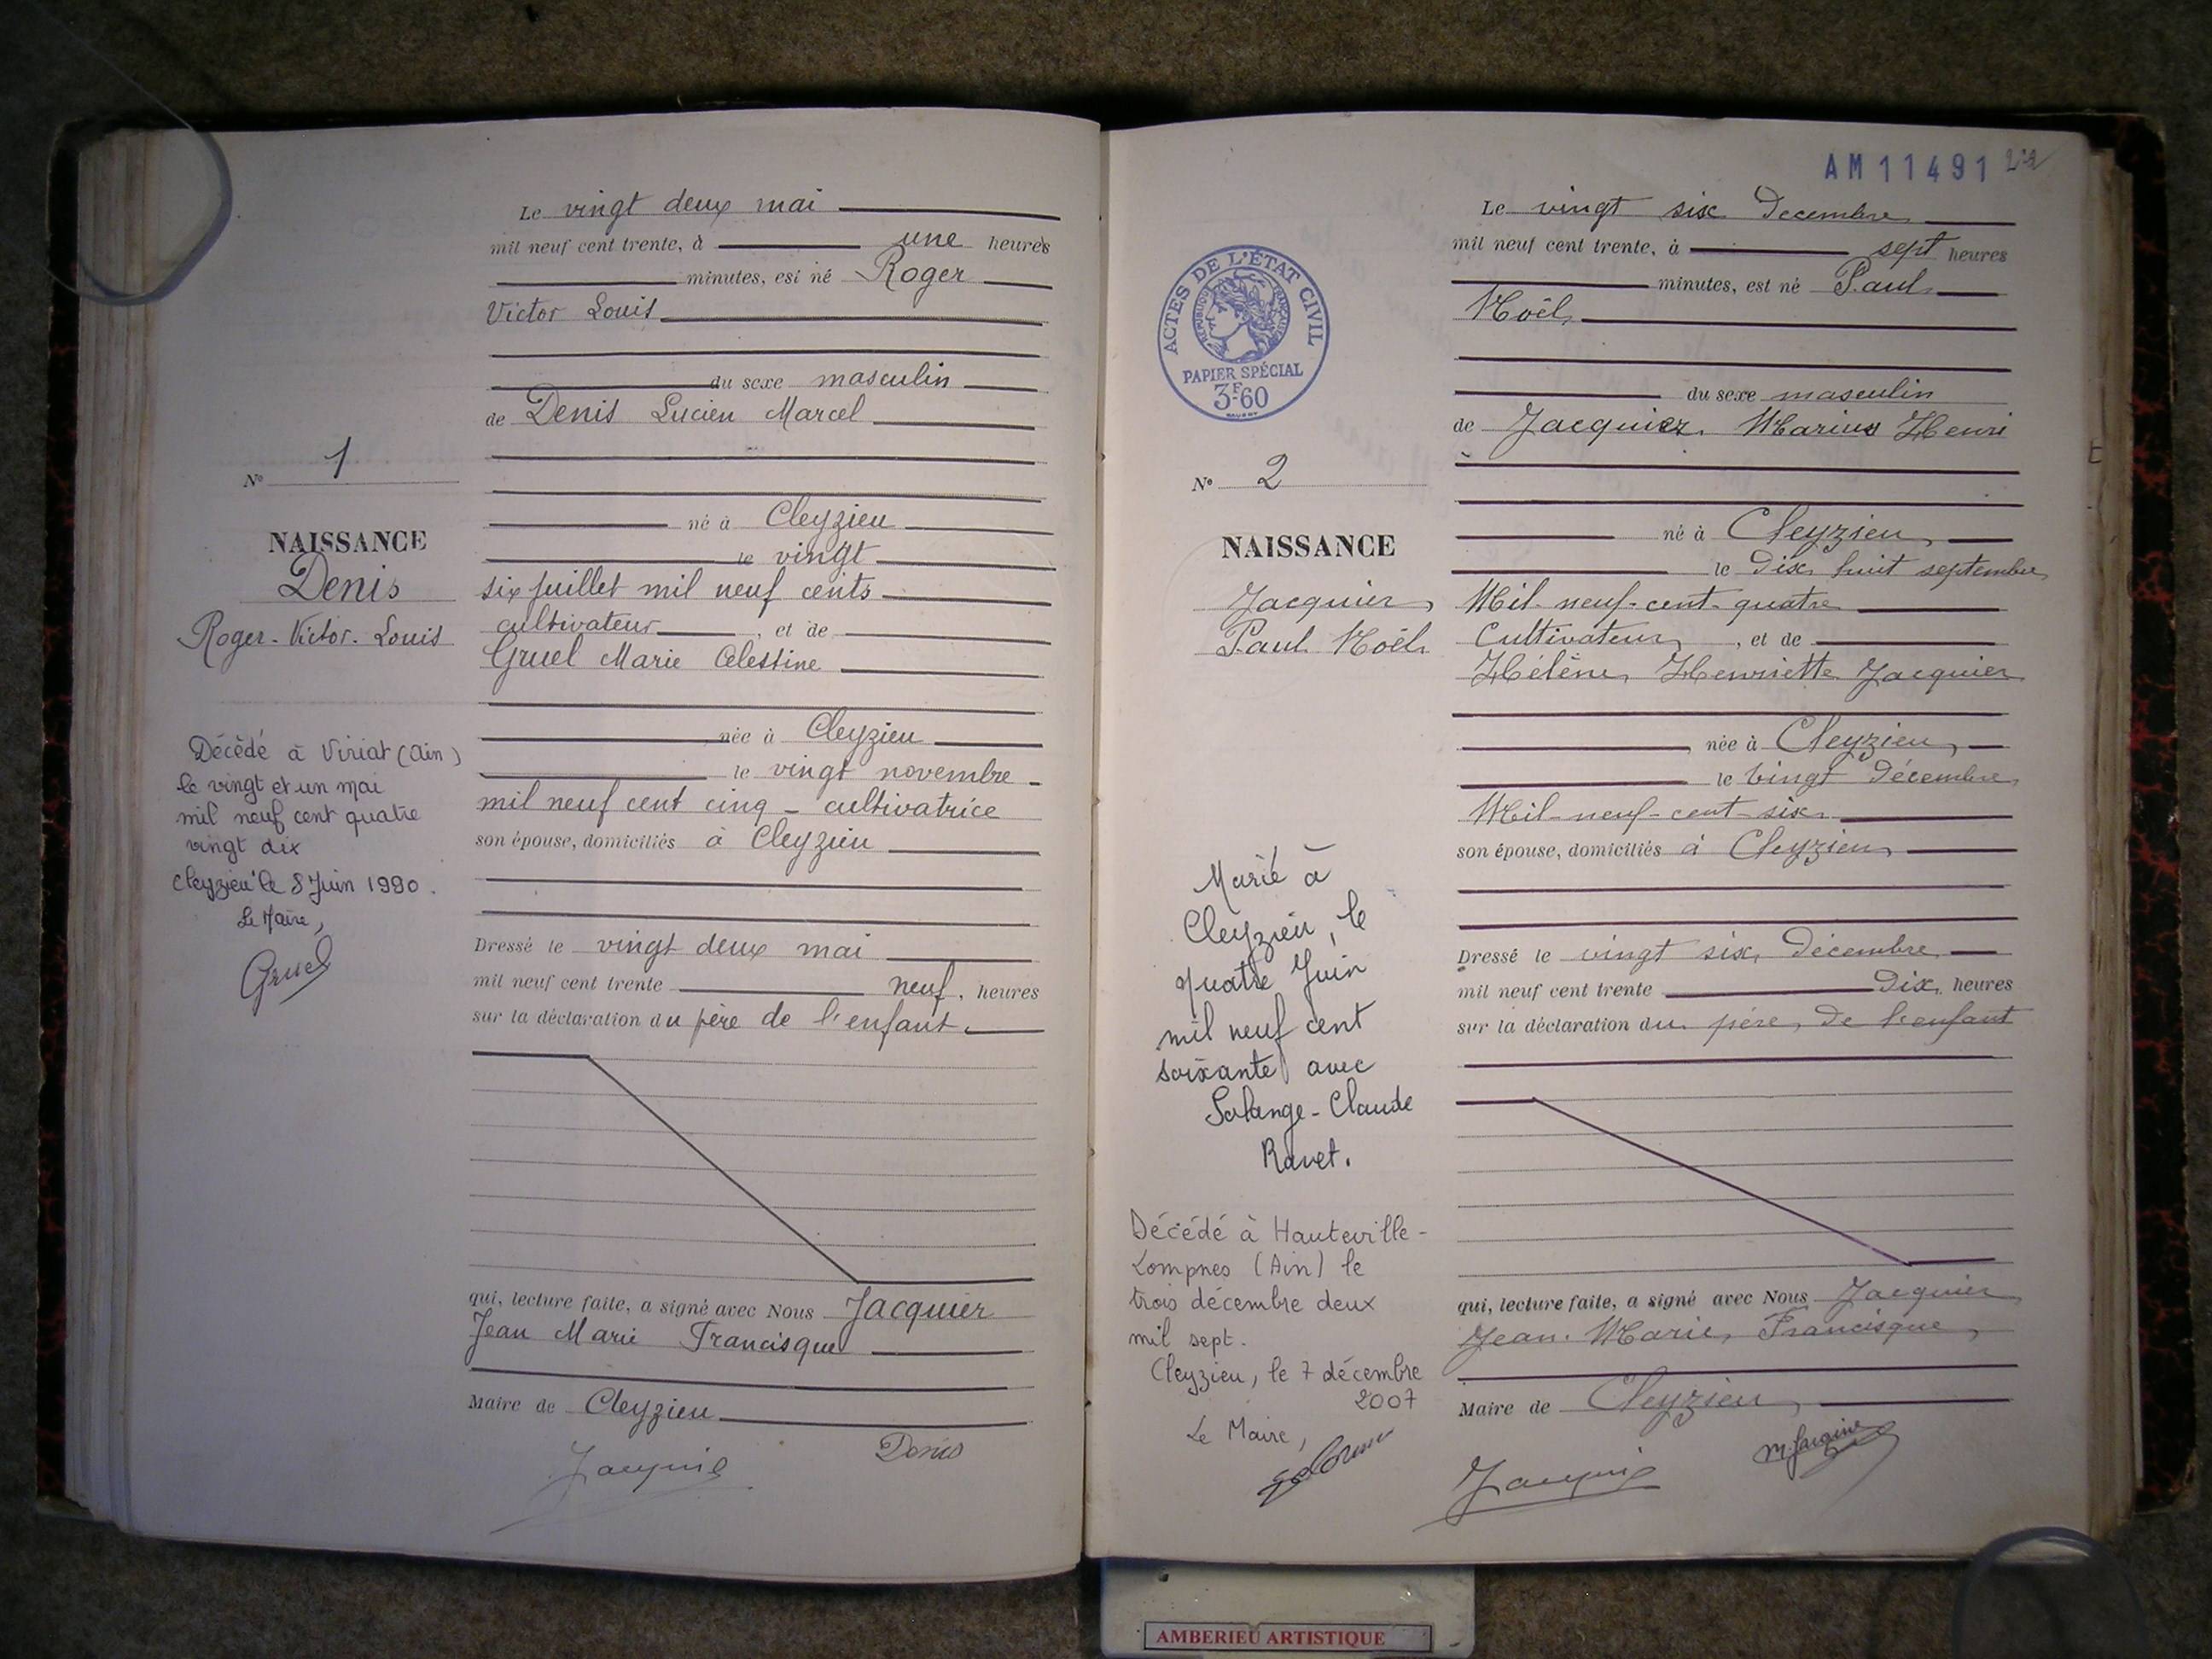 Le vingt deux mai
mil neuf cent trente, à une heures
minutes, est né Roger
Victor Louis
du sexe masculin
de Denis Lucien Marcel
né à Cleyzieu
le vingt
six juillet mil neuf cents
cultivateur, et de
Gruel Marie Célestine
née à Cleyzieu
le vingt novembre
mil neuf cent cinq - cultivatrice
son épouse, domiciliés à Cleyzieu
Dressé le vingt deux mai
mil neuf cent trente neuf, heures
sur la déclaration du père de l'enfant.
qui, lecture faite, a signé avec Nous Jacquier
Jean Marie Francisque
Maire de Cleyzieu
Jacquier Denis
N° 1
NAISSANCE
Denis
Roger-Victor-Louis
Décédé à Viriat (Ain)
le vingt et un mai
mil neuf cent quatre
vingt dix
Cleyzieu le 8 Juin 1990.
Le Maire,
Gruel
AM11491
ACTES DE L'ÉTAT CIVIL
RÉPUBLIQUE FRANÇAISE
PAPIER SPÉCIAL
3F60
N° 2
NAISSANCE
Jacquier
Paul Noël
Marié à
Cleyzieu, le
quatre Juin
mil neuf cent
soixante avec
Solange-Claude
Ravet.
Décédé à Hauteville-
Lompnes (Ain) le
trois décembre deux
mil sept.
Cleyzieu, le 7 décembre
2007
Le Maire,
Le vingt six Decembre
mil neuf cent trente, à sept heures
minutes, est né Paul
Noël
du sexe masculin
de Jacquier Marius Henri
né à Cleyzieu
le Dix huit septembre
Mil-neuf-cent-quatre
Cultivateur, et de
Hélène Henriette Jacquier
née à Cleyzieu
le Vingt Décembre
Mil-neuf-cent-six
son épouse, domiciliés à Cleyzieu
Dressé le vingt six Décembre
mil neuf cent trente Dix heures
sur la déclaration du père De l'enfant
qui, lecture faite, a signé avec Nous Jacquier
Jean-Marie, Francisque,
Maire de Cleyzieu,
Jacquier M. Jacquier
AMBERIEU ARTISTIQUE